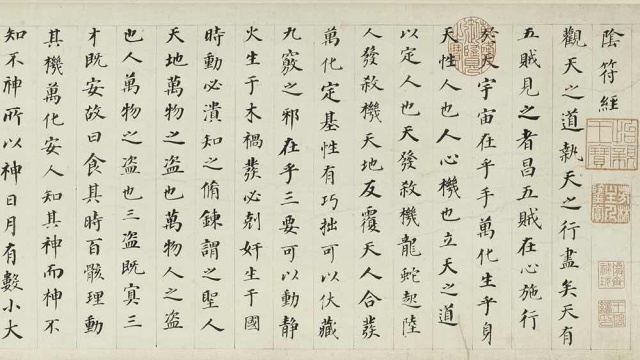 陰符經
觀天之道執天之行盡矣天有
五賊見之者昌五賊在心施行
於天宇宙在乎手萬化生乎身
天性人也人心機也立天之道
以定人也天發殺機龍蛇起陸
人發殺機天地反覆天人合發
萬化定基性有巧拙可以伏藏
九竅之邪在乎三要可以動靜
火生于木禍發必剋奸生于國
時動必潰知之脩鍊謂之聖人
天地萬物之盜也萬物人之盜
也人萬物之盜也三盜既宜三
才既安故曰食其時百骸理動
其機萬化安人知其神而神不
知不神所以神日月有數小大